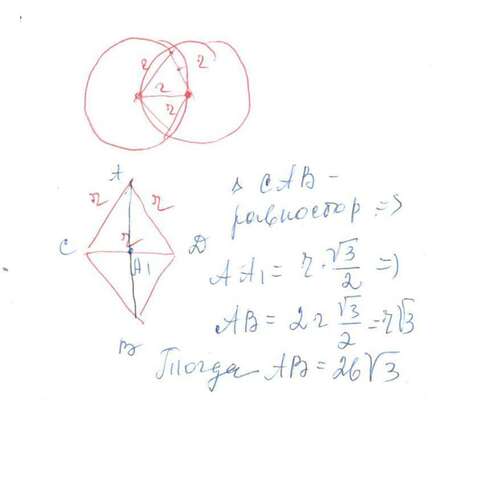 r r
r
r
A
r r
C r D
A1
B
Δ CAB –
равностор. =>
AA1 = r · √3/2 =>
AB = 2r √3/2 = r√3
Тогда AB = 26√3